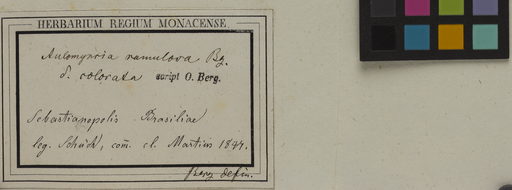 HERBARIUM REGIUM MONACENSE
Aulomyrcia ramulosa Bg.
δ. colorata script O. Berg.
Sebastianopolis Brasiliae
leg. Schüch, com. cl. Martius 1847.
Berg defin.